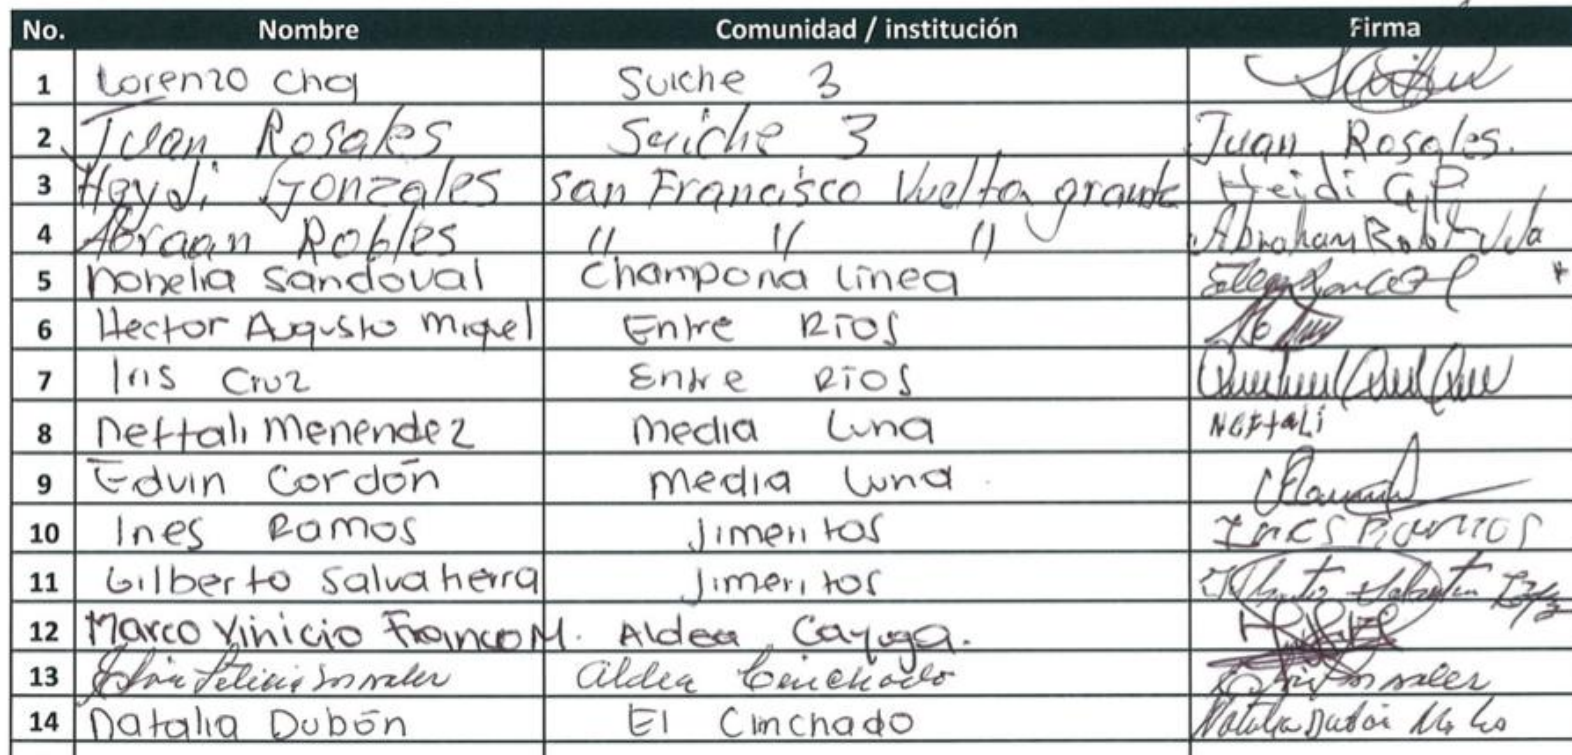 No. Nombre Comunidad / institución Firma
1 Lorenzo Chq Suiche 3
2 Juan Rosales Suiche 3 Juan Rosales.
3 Heydi Gonzales San Francisco Vuelta grande Heidi G.P
4 Abraan Robles " " " Abraham
5 Nohelia Sandoval Champona Linea
6 Hector Augusto Miguel Entre Ríos
7 Iris Cruz Entre Ríos
8 Neftali Menendez Media Luna Neftali
9 Edvin Cordón Media Luna
10 Ines Ramos Jimeritos Ines Ramos
11 Gilberto Salvaherra Jimeritos
12 Marco Vinicio Franco M. Aldea Cayuga.
13 Aldea Cinchado
14 Natalia Dubón El Cinchado Natalia Dubón